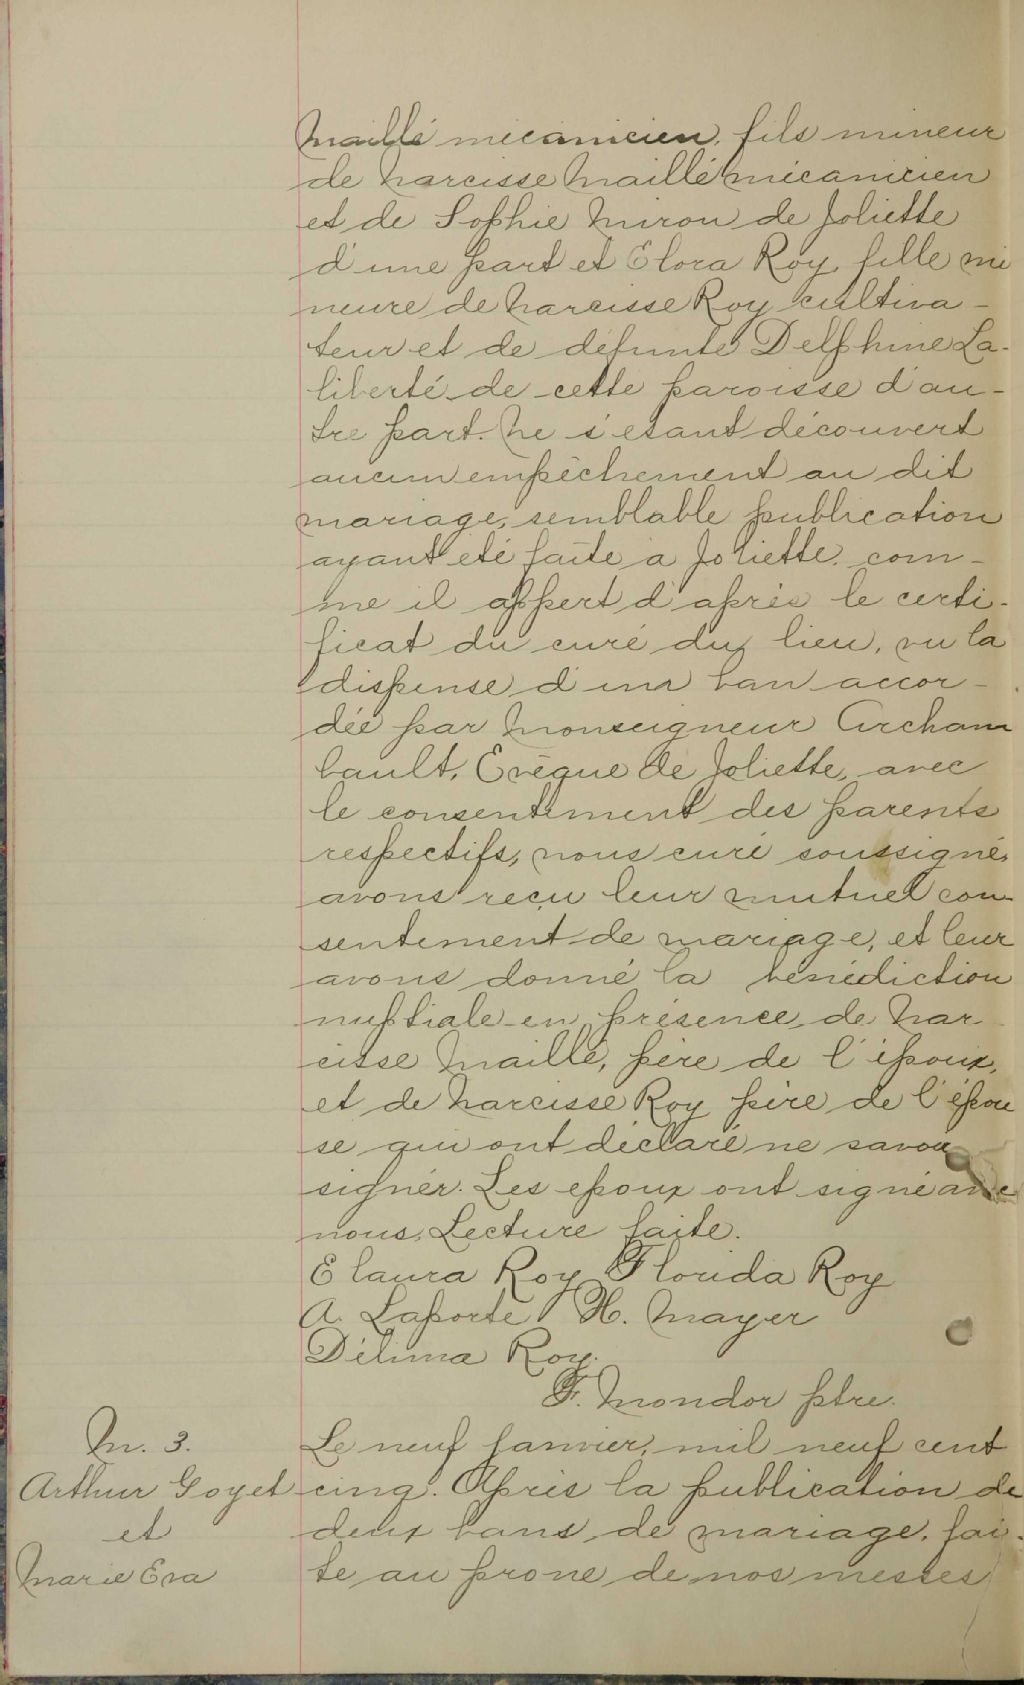 Maillé mécanicien, fils mineur
de Narcisse Maillé mécanicien
et de Sophie Miron de Joliette
d'une part et Elora Roy, fille mi
neure de Narcisse Roy cultiva-
teur et de défunte Delphine La-
liberté de cette paroisse d'au-
tre part. Ne s'étant découvert
aucun empêchement au dit
mariage, semblable publication
ayant été faite à Joliette, com-
me il appert d'après le certi-
ficat du curé du lieu, vu la
dispense d'un ban accor-
dée par Monseigneur Archam
bault, Evêque de Joliette, avec
le consentement des parents
respectifs, nous curé soussigné,
avons reçu leur mutuel con-
sentement de mariage, et leur
avons donné la bénédiction
nuptiale en présence de Nar
cisse Maillé, père de l'époux,
et de Narcisse Roy père de l'épou
se qui ont déclaré ne savoir
signer. Les époux ont signé avec
nous, Lecture faite.
Elaura Roy Florida Roy
A. Laporte H. Mayer
Délima Roy.
F. Mondor ptre.
M. 3.
Arthur Goyet
et
Marie Eva
Le neuf Janvier, mil neuf cent
cinq. Après la publication de
deux bans de mariage, fai-
te au prone de nos messes